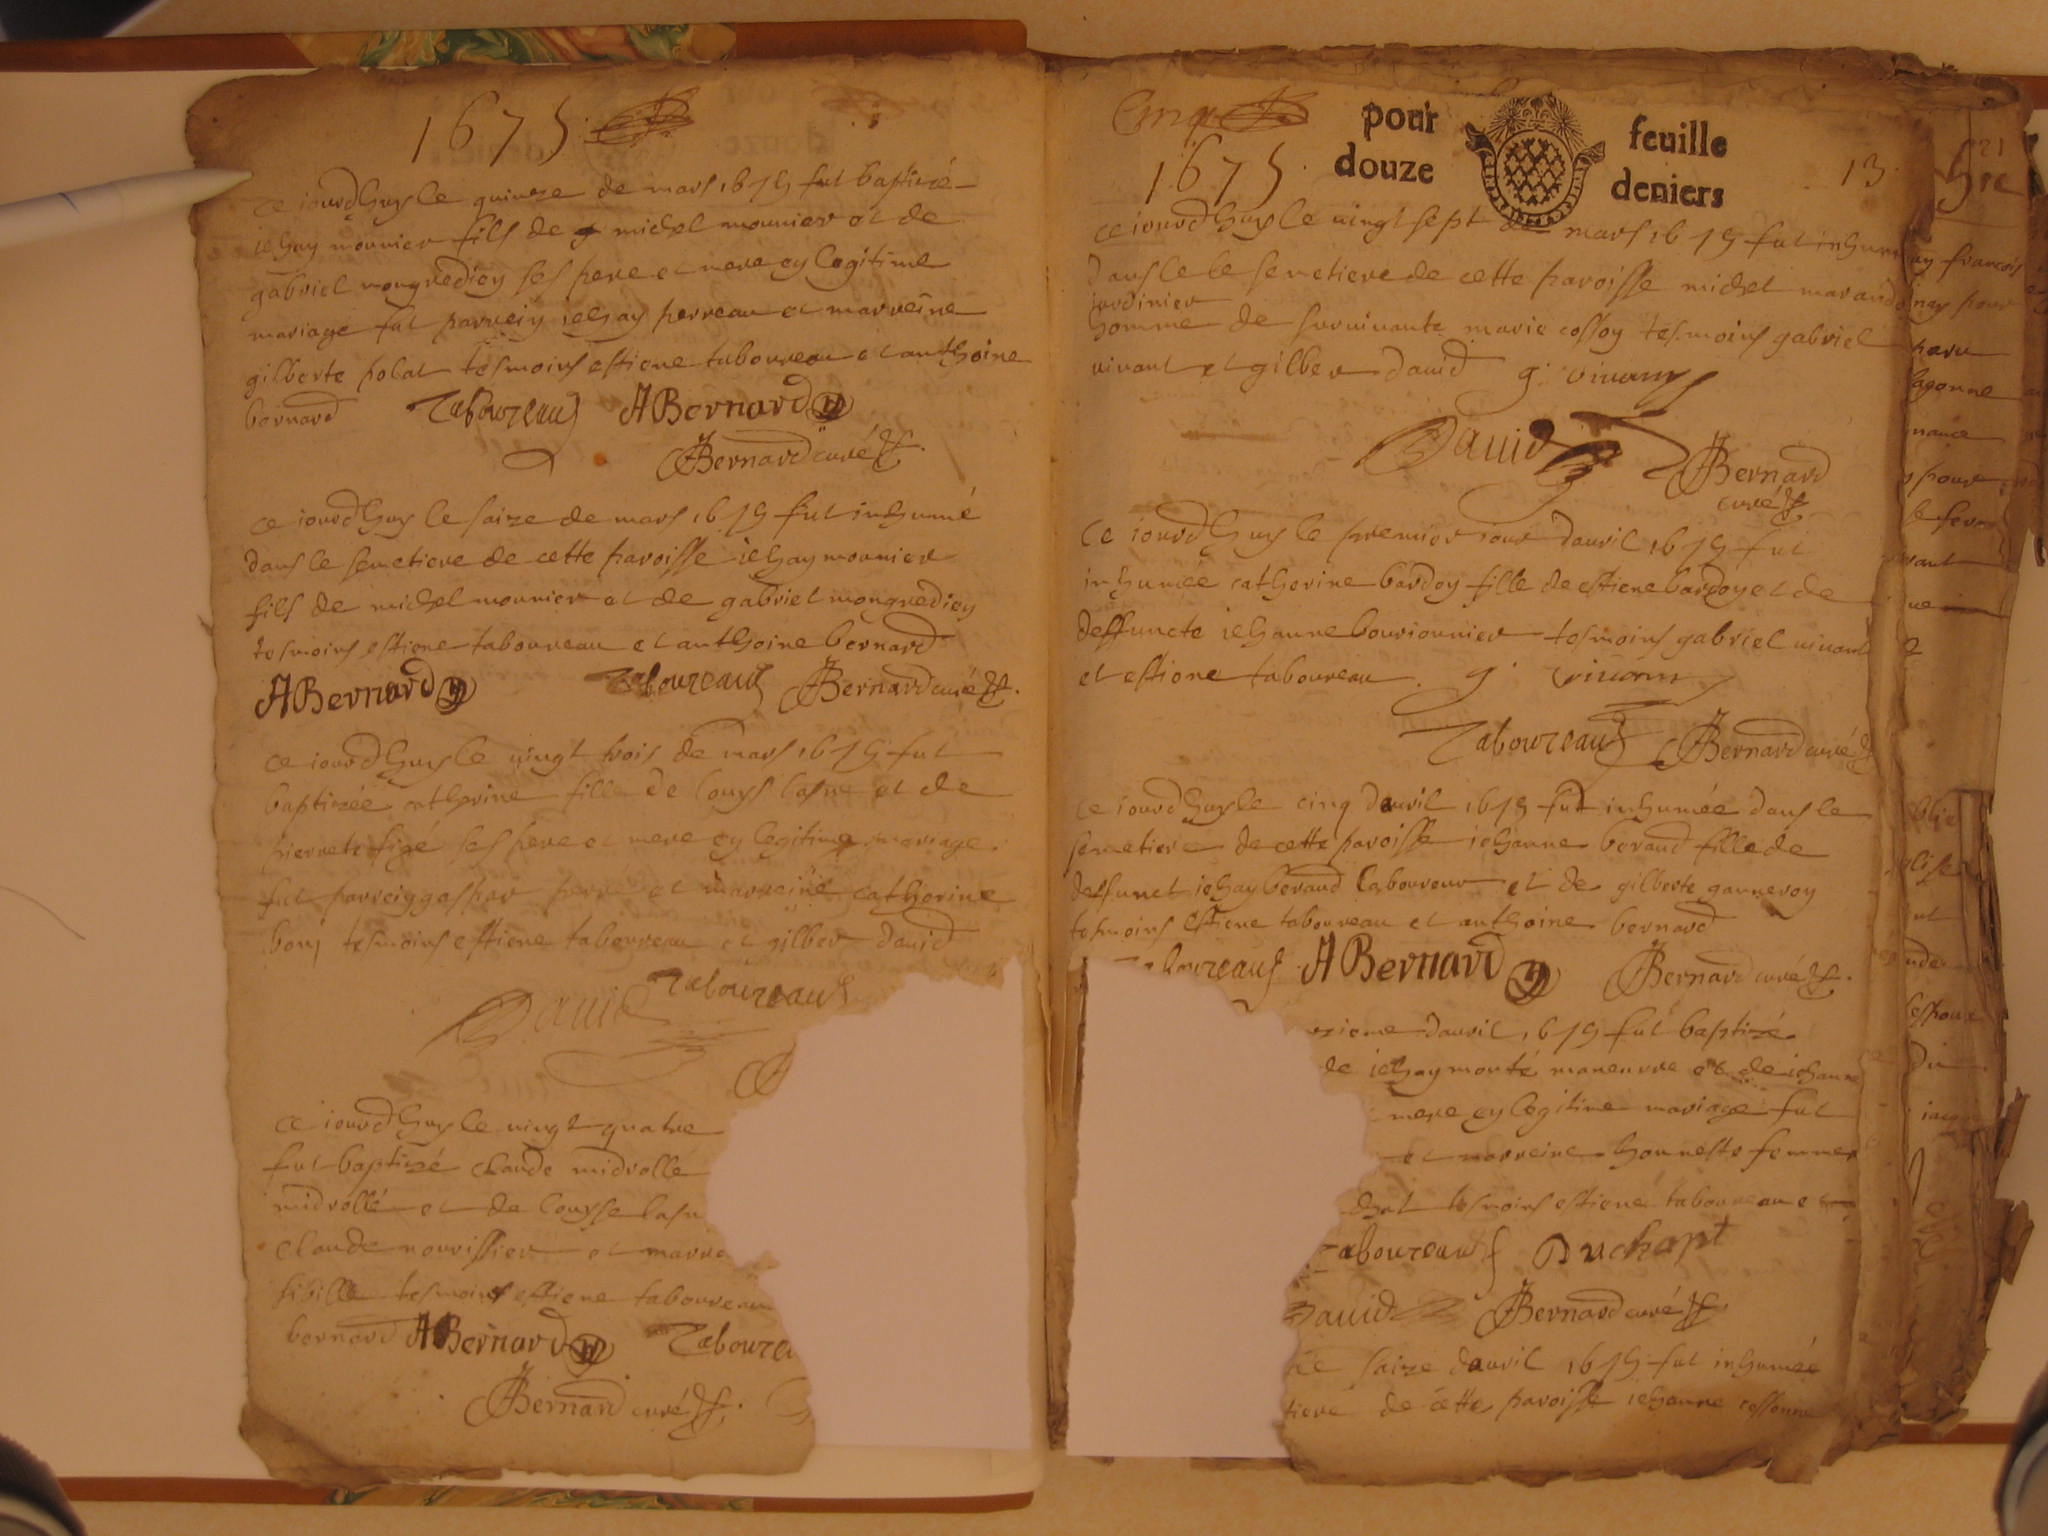 1675
ce iourdhuy le quinze de mars 1675 fut baptizé
iehan mounier fils de michel mounier et de
gabriel mongredien ses pere et mere en legitime
mariage fut parrein iehan perreau et marreine
gilberte polat tesmoins estiene taboureau et anthoine
bernard Taboureau ABernard
Bernard curé
ce iourdhuy le saize de mars 1675 fut inhumé
dans le semetiere de cette paroisse iehan mounier
fils de michel mounier et de gabriel mongredien
tesmoins estiene taboureau et anthoine bernard
ABernard Taboureau Bernard curé
ce iourdhuy le vingt trois de mars 1675 fut
baptizée catherine fille de louys lasne et de
pierrete ses pere et mere en legitime mariage
fut parrein gaspar et marreine catherine
tesmoins estiene taboureau et gilber david
David Taboureau
ce iourdhuy le vingt quatre
fut baptizé claude midrollé
midrollé et de louyse lasn
claude nourissier et marre
sibille tesmoins estiene taboureau
bernard ABernard Taboure
Bernard curé
Cinq pour feuille
1675 douze deniers 13
ce iourdhuy le vingt sept de mars 1675 fut inhumé
dans le semetiere de cette paroisse michel marand
jardinier
homme de survivante marie cosson tesmoins gabriel
vivant et gilber david g. vivant
David Bernard
curé
ce iourdhuy le premier iour davril 1675 fut
inhumée catherine bardon fille de estiene bardon et de
deffuncte iehanne bourionnier tesmoins gabriel vivant
et estiene taboureau. g. vivant
Taboureau Bernard curé
ce iourdhuy le cinq davril 1675 fut inhumée dans le
semetiere de cette paroisse iehanne beraud fille de
deffunct iehan beraud laboureur et de gilberte ganneron
tesmoins estiene taboureau et anthoine bernard
taboureau ABernard Bernard curé
zieme davril 1675 fut baptizé
de iehan monté maneuvre et de iehanne
mere en legitime mariage fut
et marreine honneste femme
tesmoins estiene taboureau et
Taboureau Duchapt
David Bernard curé
saize davril 1675 fut inhumée
tiere de cette paroisse iehanne cossonne